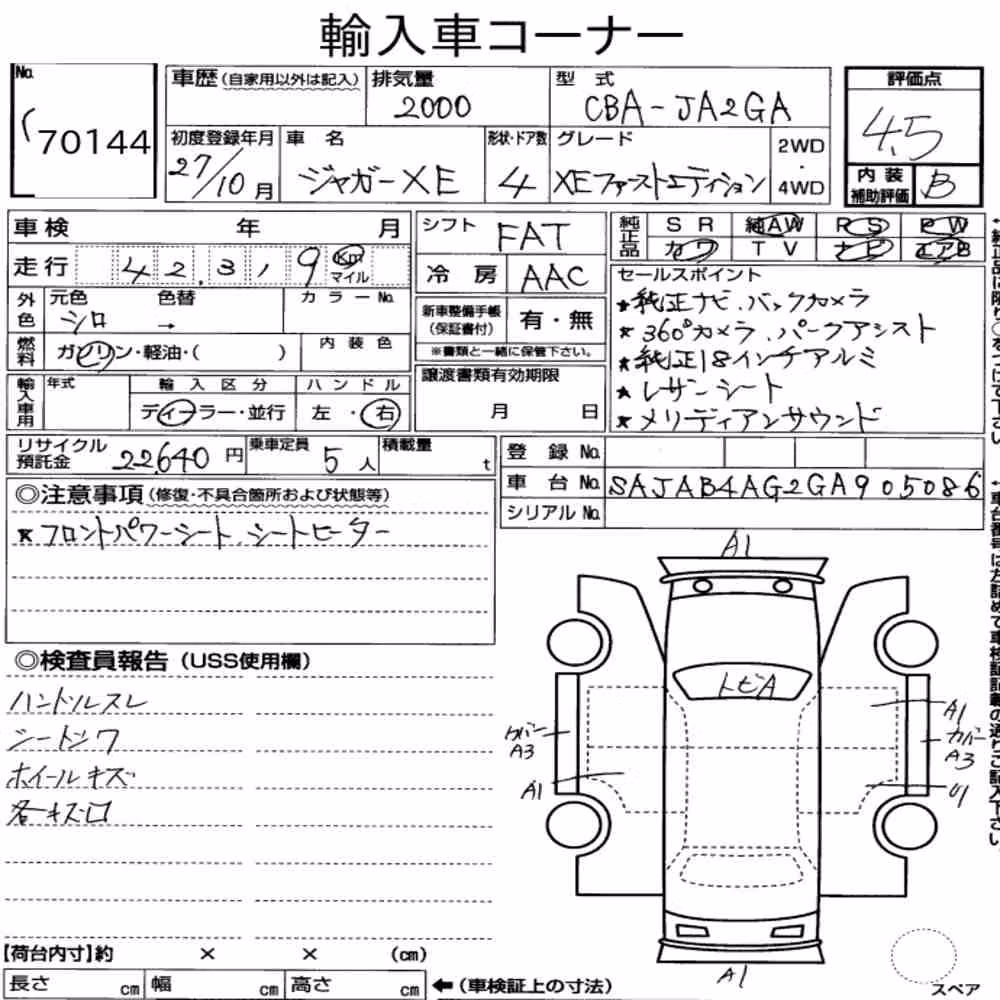 輸入車コーナー
No. 70144
車歴(自家用以外は記入) 排気量 2000 型 式 CBA-JA2GA 評価点 4.5
初度登録年月 27/10月 車 名 ジャガーXE 形状・ドア数 4 グレード XEファーストエディション 2WD・4WD 内装補助評価 B
車検 年 月 シフト FAT 純正品 SR 純AW PS PW
カワ TV ナビ エアB
走行 42,319 Km マイル 冷房 AAC
セールスポイント
外色 元色 シロ 色替 → カラーNo.
新車整備手帳(保証書付) 有・無
※書類と一緒に保管下さい。
★純正ナビ.バックカメラ
★360°カメラ.パークアシスト
★純正18インチアルミ
★レザーシート
★メリディアンサウンド
燃料 ガソリン・軽油・( ) 内装色
輸入車用 年式 輸入区分 ディーラー・並行 ハンドル 左・右
譲渡書類有効期限
月 日
リサイクル預託金 22,640円 乗車定員 5人 積載量 t
登録No.
車台No. SAJAB4AG2GA905086
シリアルNo.
◎注意事項(修復・不具合箇所および状態等)
★フロントパワーシート.シートヒーター
◎検査員報告(USS使用欄)
ハンドルスレ
シートシワ
ホイールキズ
各キズ口
A1
トビA
カバーA3
A1
A1
カバーA3
U1
A1
【荷台内寸】約 × × (cm)
長さ cm 幅 cm 高さ cm ←(車検証上の寸法)
スペア